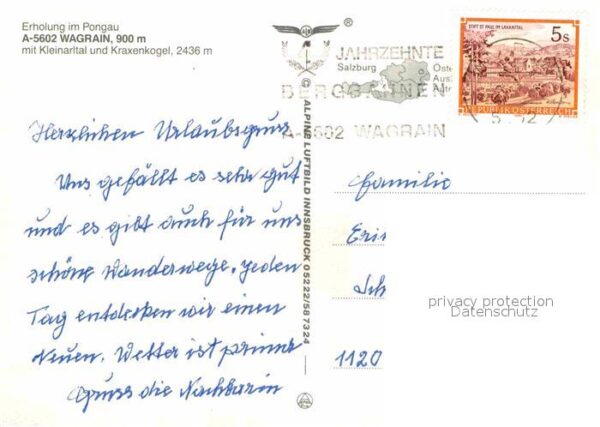 Erholung im Pongau
A-5602 WAGRAIN, 900 m
mit Kleinarltal und Kraxenkogel, 2436 m
JAHRZEHNTE
Salzburg
BERGBAHNEN
A-5602 WAGRAIN
STIFT ST. PAUL IM LAVANTTAL
5s
REPUBLIK ÖSTERREICH
Herzlichen Urlaubsgruss
Uns gefällt es sehr gut
und es gibt auch für uns
schöne Wanderwege. Jeden
Tag entdecken wir einen
Neuen. Wetter ist prima
Gruss die Nachbarin
© ALPINE LUFTBILD INNSBRUCK 05222/587324
Familie
1120
privacy protection
Datenschutz